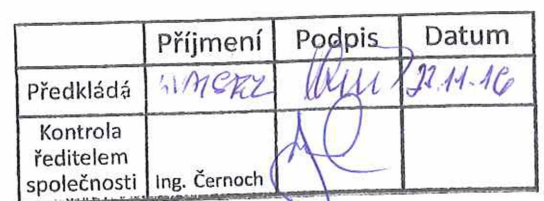 Příjmení Podpis Datum
Předkládá 22.11.16
Kontrola
ředitelem
společnosti Ing. Černoch